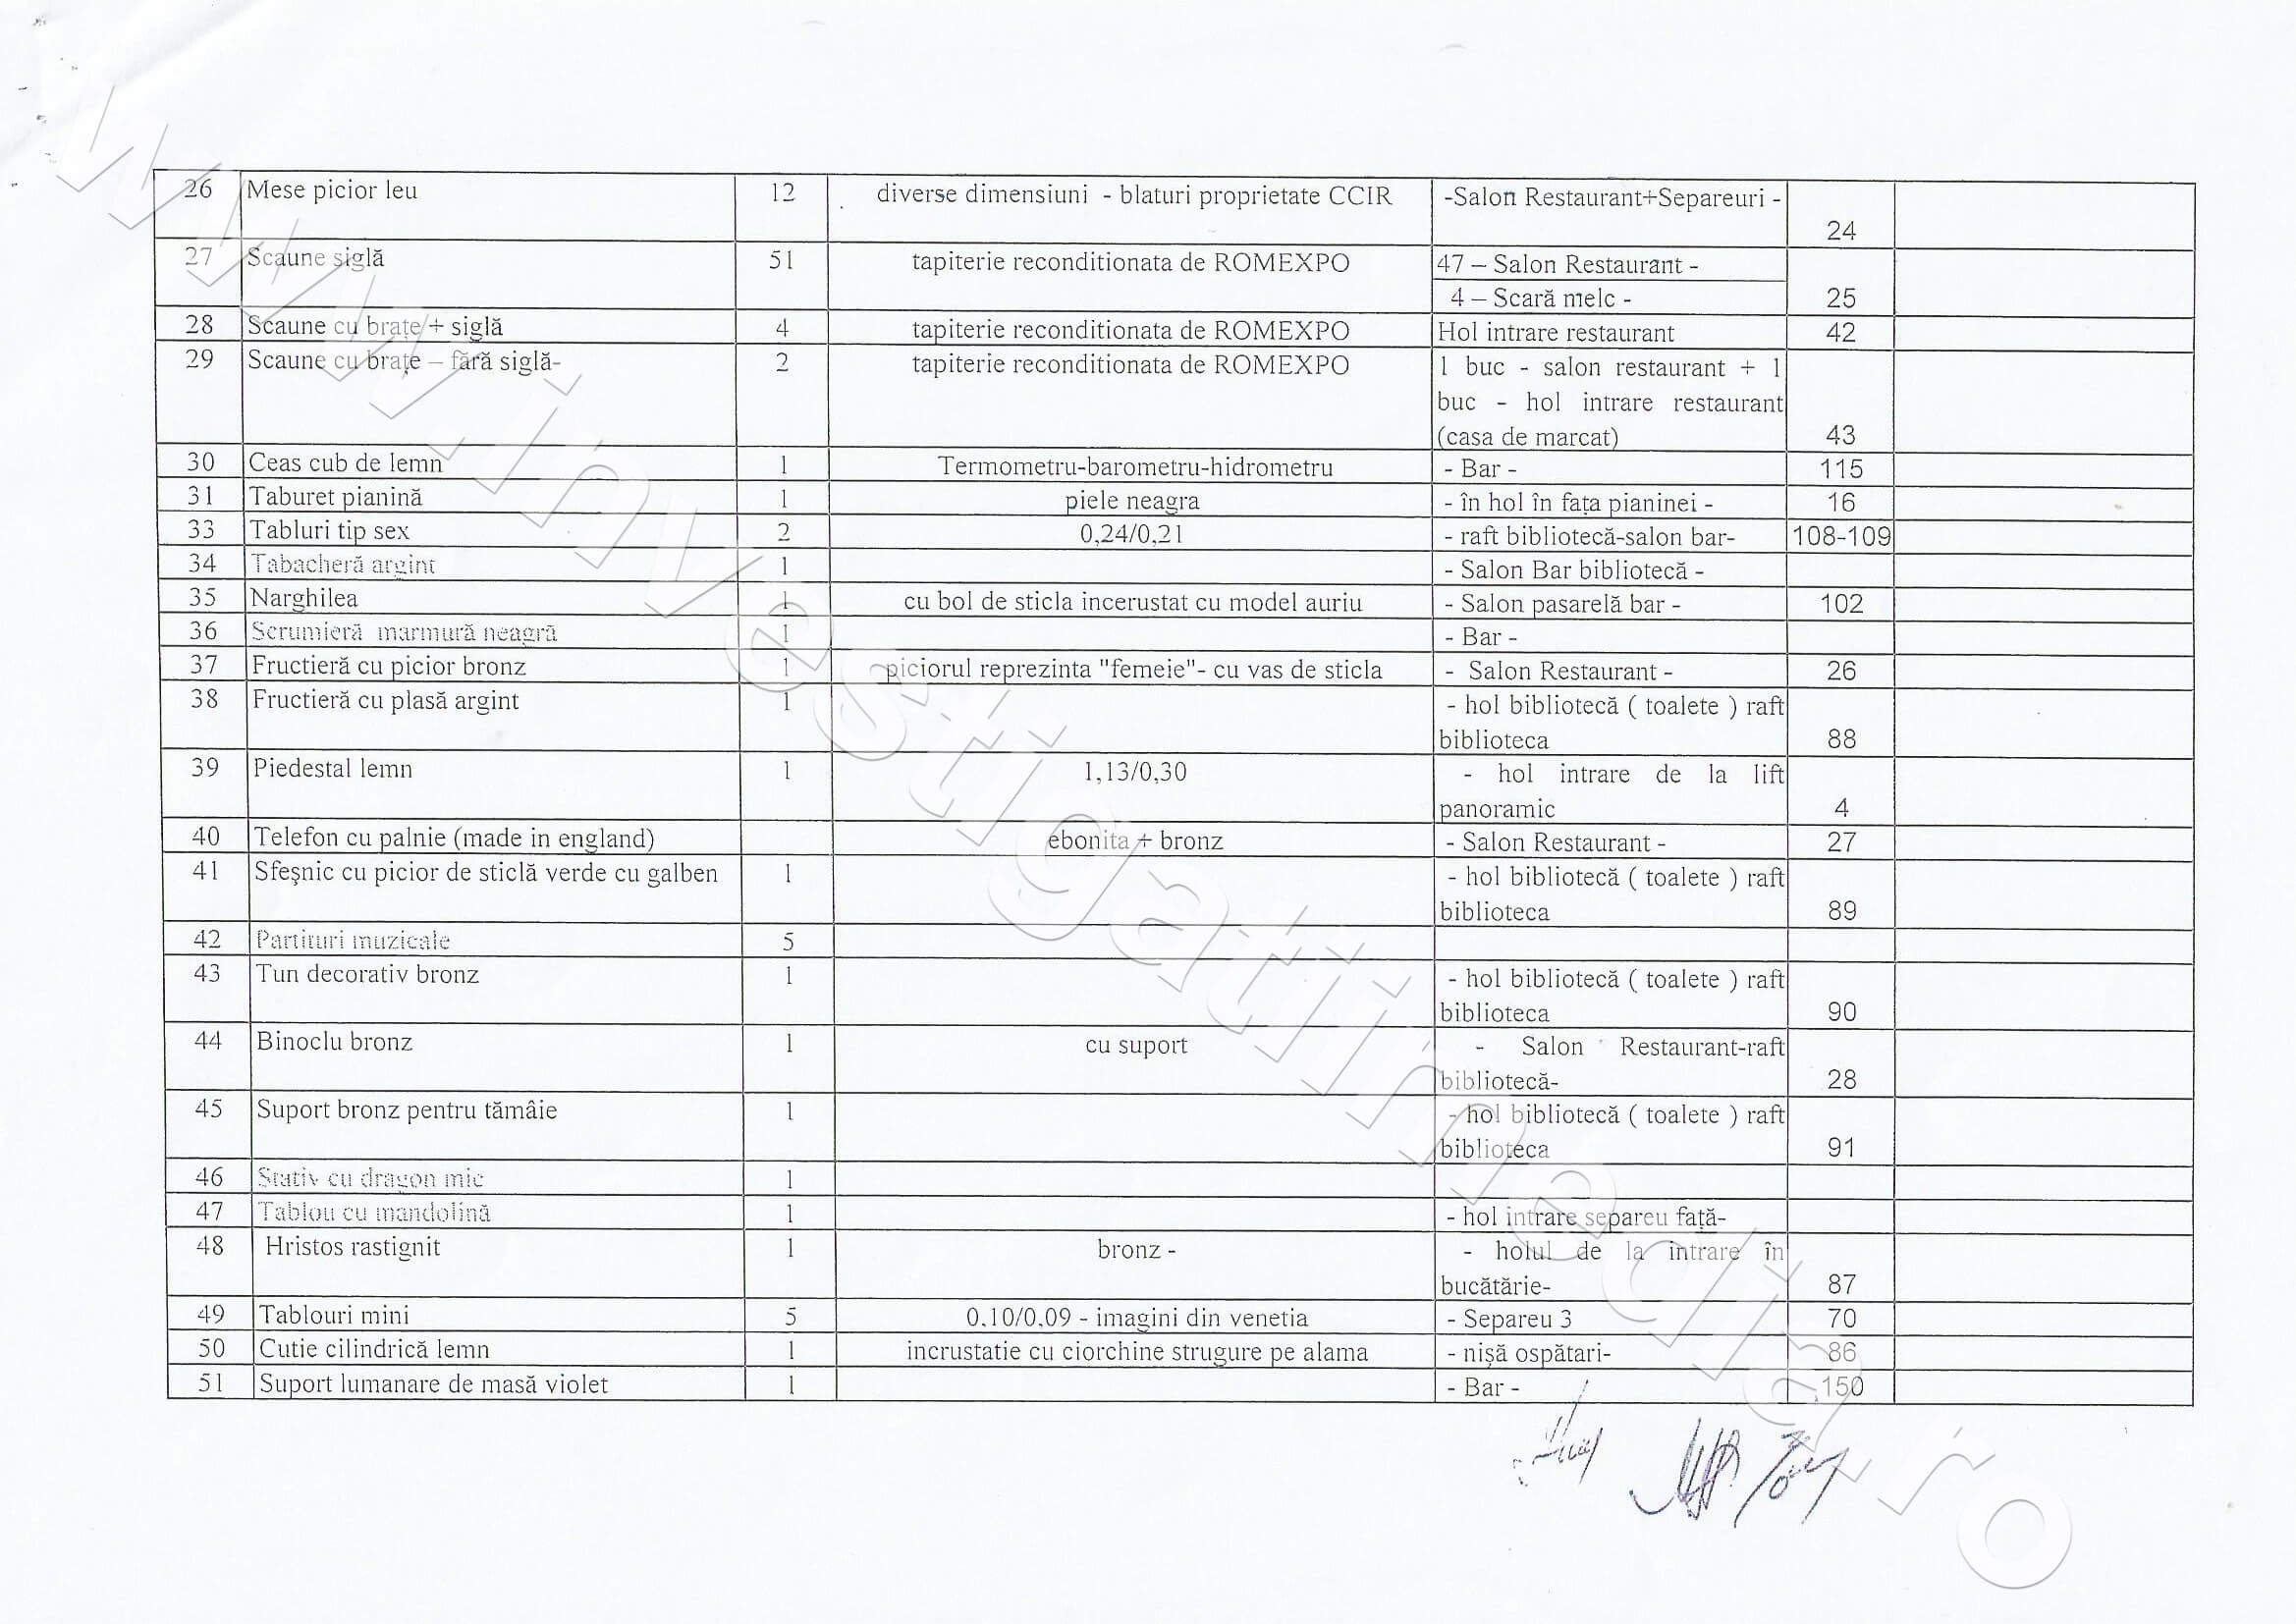 26 Mese picior leu 12 diverse dimensiuni - blaturi proprietate CCIR -Salon Restaurant+Separeuri - 24
27 Scaune siglă 51 tapiterie reconditionata de ROMEXPO 47 – Salon Restaurant -
4 – Scară melc - 25
28 Scaune cu brațe + siglă 4 tapiterie reconditionata de ROMEXPO Hol intrare restaurant 42
29 Scaune cu brațe – fără siglă- 2 tapiterie reconditionata de ROMEXPO 1 buc - salon restaurant + 1
buc - hol intrare restaurant
(casa de marcat) 43
30 Ceas cub de lemn 1 Termometru-barometru-hidrometru - Bar - 115
31 Taburet pianină 1 piele neagra - în hol în fața pianinei - 16
33 Tabluri tip sex 2 0,24/0,21 - raft bibliotecă-salon bar- 108-109
34 Tabacheră argint 1 - Salon Bar bibliotecă -
35 Narghilea 1 cu bol de sticla incerustat cu model auriu - Salon pasarelă bar - 102
36 Scrumieră marmură neagră 1 - Bar -
37 Fructieră cu picior bronz 1 piciorul reprezinta "femeie"- cu vas de sticla - Salon Restaurant - 26
38 Fructieră cu plasă argint 1 - hol bibliotecă ( toalete ) raft
biblioteca 88
39 Piedestal lemn 1 1,13/0,30 - hol intrare de la lift
panoramic 4
40 Telefon cu palnie (made in england) ebonita + bronz - Salon Restaurant - 27
41 Sfeşnic cu picior de sticlă verde cu galben 1 - hol bibliotecă ( toalete ) raft
biblioteca 89
42 Partituri muzicale 5
43 Tun decorativ bronz 1 - hol bibliotecă ( toalete ) raft
biblioteca 90
44 Binoclu bronz 1 cu suport - Salon Restaurant-raft
bibliotecă- 28
45 Suport bronz pentru tămâie 1 - hol bibliotecă ( toalete ) raft
biblioteca 91
46 Stativ cu dragon mic 1
47 Tablou cu mandolină 1 - hol intrare separeu față-
48 Hristos rastignit 1 bronz - - holul de la intrare în
bucătărie- 87
49 Tablouri mini 5 0,10/0,09 - imagini din venetia - Separeu 3 70
50 Cutie cilindrică lemn 1 incrustatie cu ciorchine strugure pe alama - nişă ospătari- 86
51 Suport lumanare de masă violet 1 - Bar - 150
www.investigatimedia.ro